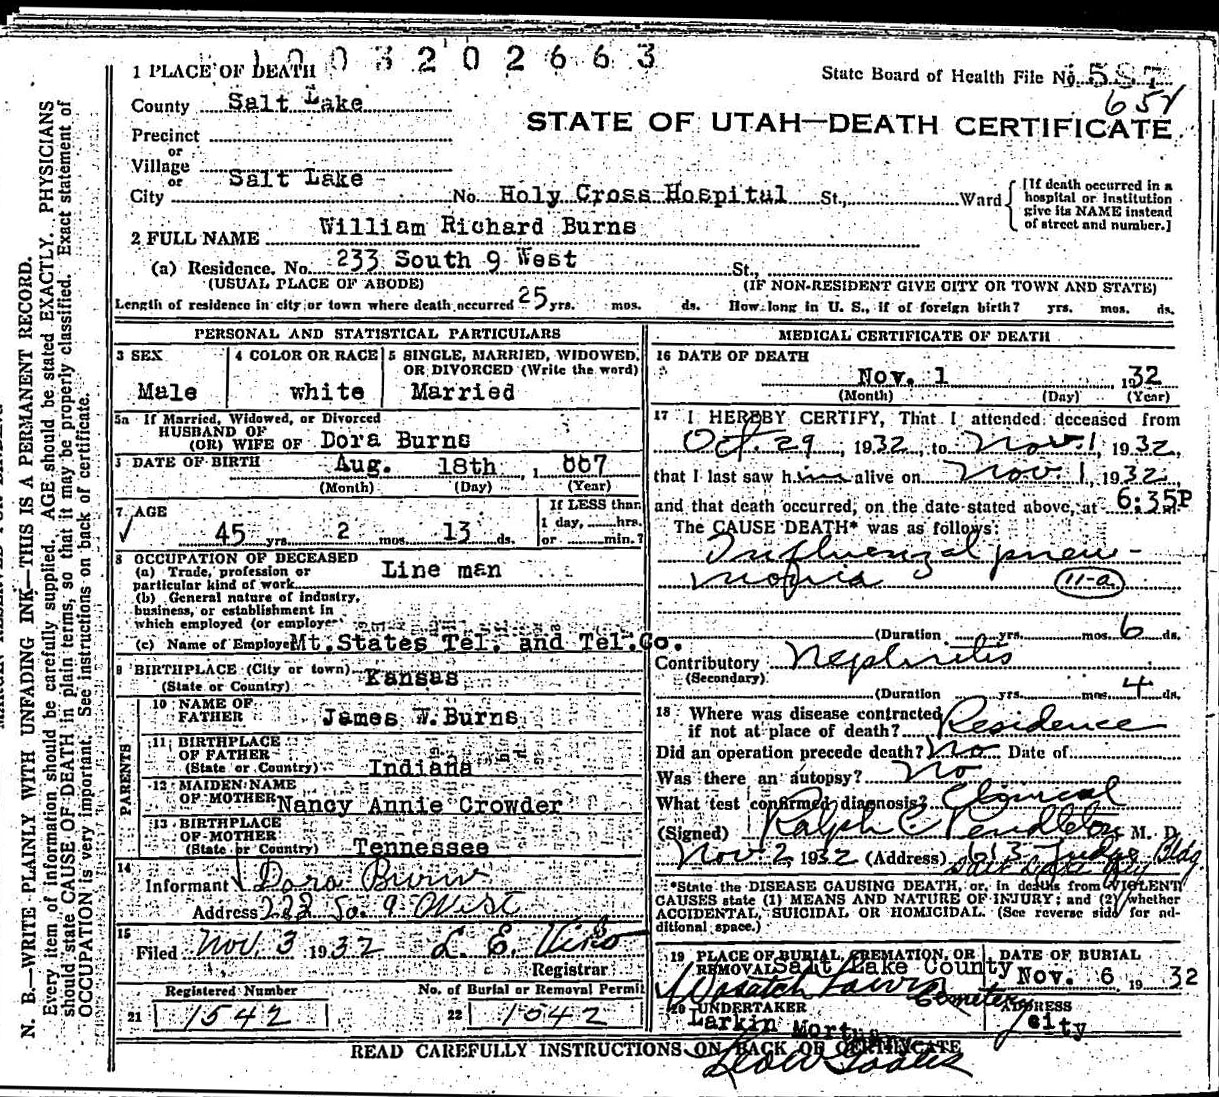 1003202663
1 PLACE OF DEATH
State Board of Health File No. 587
County Salt Lake
651
STATE OF UTAH—DEATH CERTIFICATE
Precinct
or
Village
or
City Salt Lake No. Holy Cross Hospital St., Ward
[If death occurred in a hospital or institution give its NAME instead of street and number.]
2 FULL NAME William Richard Burns
(a) Residence. No. 233 South 9 West St.,
(USUAL PLACE OF ABODE) (IF NON-RESIDENT GIVE CITY OR TOWN AND STATE)
Length of residence in city or town where death occurred 25 yrs. mos. ds. How long in U. S., if of foreign birth? yrs. mos. ds.
PERSONAL AND STATISTICAL PARTICULARS
3 SEX 4 COLOR OR RACE 5 SINGLE, MARRIED, WIDOWED, OR DIVORCED (Write the word)
Male white Married
5a If Married, Widowed, or Divorced
HUSBAND OF
(OR) WIFE OF Dora Burns
DATE OF BIRTH Aug. 18th, 887
(Month) (Day) (Year)
7 AGE If LESS than
1 day, hrs.
45 yrs. 2 mos. 13 ds. or min.?
8 OCCUPATION OF DECEASED
(a) Trade, profession or
particular kind of work Line man
(b) General nature of industry,
business, or establishment in
which employed (or employer
(c) Name of Employer Mt.States Tel. and Tel.Co.
9 BIRTHPLACE (City or town) Kansas
(State or Country)
PARENTS
10 NAME OF
FATHER James W.Burns
11 BIRTHPLACE
OF FATHER
(State or Country) Indiana
12 MAIDEN NAME
OF MOTHER Nancy Annie Crowder
13 BIRTHPLACE
OF MOTHER
(State or Country) Tennessee
14
Informant Dora Burns
Address 233 So. 9 West
15
Filed Nov. 3 1932 L. E. Viko
Registrar
Registered Number No. of Burial or Removal Permit
21 1542 22 1542
MEDICAL CERTIFICATE OF DEATH
16 DATE OF DEATH
Nov. 1, 1932
(Month) (Day) (Year)
17 I HEREBY CERTIFY, That I attended deceased from
Oct. 29, 1932, to Nov. 1, 1932,
that I last saw him alive on Nov. 1, 1932,
and that death occurred, on the date stated above, at 6:35P m.
The CAUSE DEATH* was as follows:
Influenzal pneu-
monia 11-a
(Duration yrs. mos. 6 ds.
Contributory Nephritis
(Secondary)
(Duration yrs. mos. 4 ds.
18 Where was disease contracted
if not at place of death? Residence
Did an operation precede death? No Date of
Was there an autopsy? No
What test confirmed diagnosis? Clinical
(Signed) Ralph C. Pendleton M. D.
Nov 2, 1932 (Address) 613 Judge Bldg
Salt Lake City
*State the DISEASE CAUSING DEATH, or, in deaths from VIOLENT
CAUSES state (1) MEANS AND NATURE OF INJURY; and (2) whether
ACCIDENTAL, SUICIDAL OR HOMICIDAL. (See reverse side for ad-
ditional space.)
19 PLACE OF BURIAL, CREMATION, OR DATE OF BURIAL
REMOVAL Salt Lake County Nov. 6 1932
Wasatch Lawn Cemetery
20 UNDERTAKER ADDRESS
Larkin Mortuary City
READ CAREFULLY INSTRUCTIONS ON BACK OF CERTIFICATE
N. B.—WRITE PLAINLY WITH UNFADING INK—THIS IS A PERMANENT RECORD.
Every item of information should be carefully supplied. AGE should be stated EXACTLY. PHYSICIANS
should state CAUSE OF DEATH in plain terms, so that it may be properly classified. Exact statement of
OCCUPATION is very important. See instructions on back of certificate.